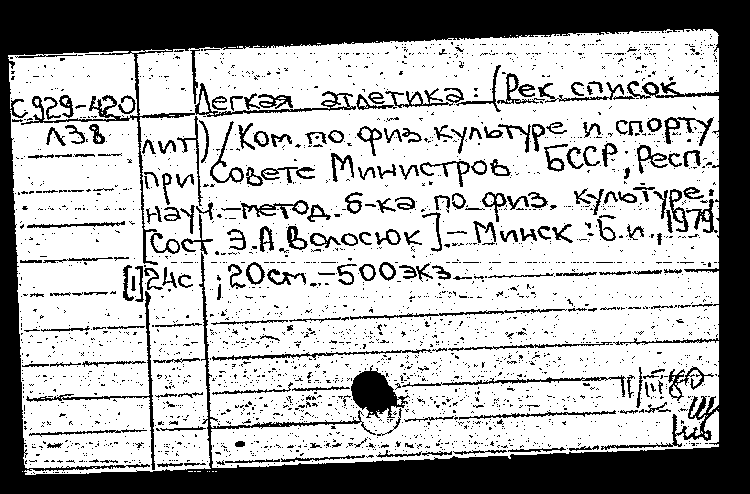 С929-420 Легкая атлетика: (Рек. список
Л38 лит) / Ком. по физ. культуре и спорту
при Совете Министров БССР, Респ.
науч.-метод. б-ка по физ. культуре;
[Сост. Э.А. Волосюк]. - Минск : Б.и., 1979
[1], 24с. ; 20см. - 500экз.
11/III 80